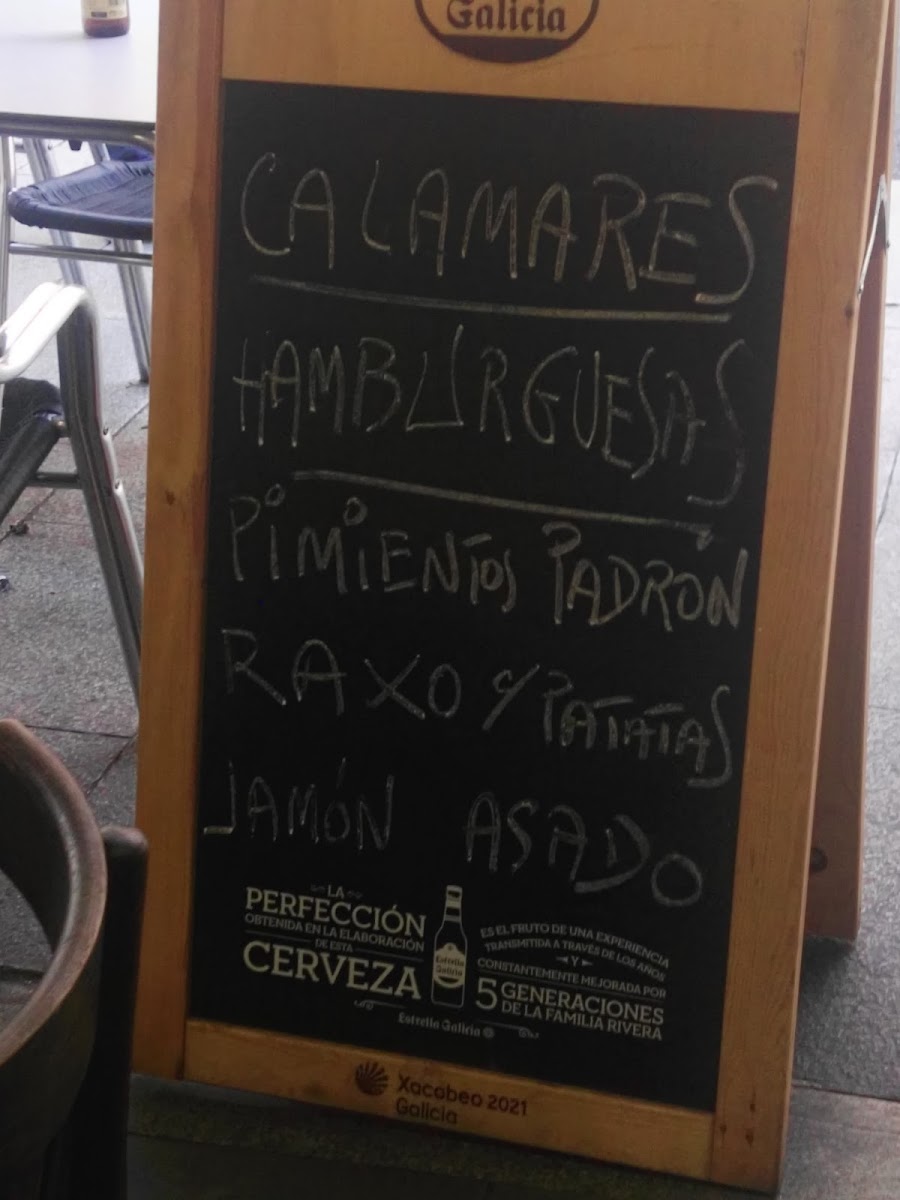 Galicia
CALAMARES
HAMBURGUESAS
PIMIENTOS PADRÓN
RAXO Y PATATAS
JAMÓN ASADO
LA
PERFECCIÓN
OBTENIDA EN LA ELABORACIÓN
DE ESTA
CERVEZA
Estrella
Galicia
ES EL FRUTO DE UNA EXPERIENCIA
TRANSMITIDA A TRAVÉS DE LOS AÑOS
Y
CONSTANTEMENTE MEJORADA POR
5 GENERACIONES
DE LA FAMILIA RIVERA
Estrella Galicia
Xacobeo 2021
Galicia